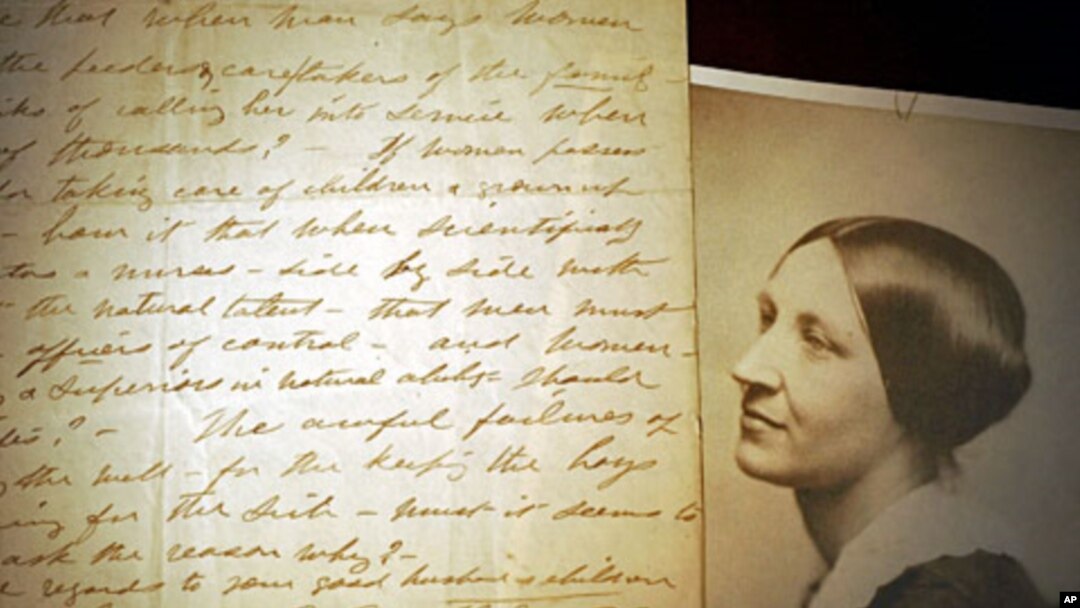 that when man says women
the feeders & caretakers of the family
of calling her into service when
of thousands? – If women possess
for taking care of children & grown up
– how is it that when scientifically
a nurses – side by side with
the natural talent – that men must
officers of control – and women –
& superiors in natural ability – should
? – The awful failures of
the well – for the keeping the boys
for the sick – must it seems to
ask the reason why? –
regards to your good husband & children
AP